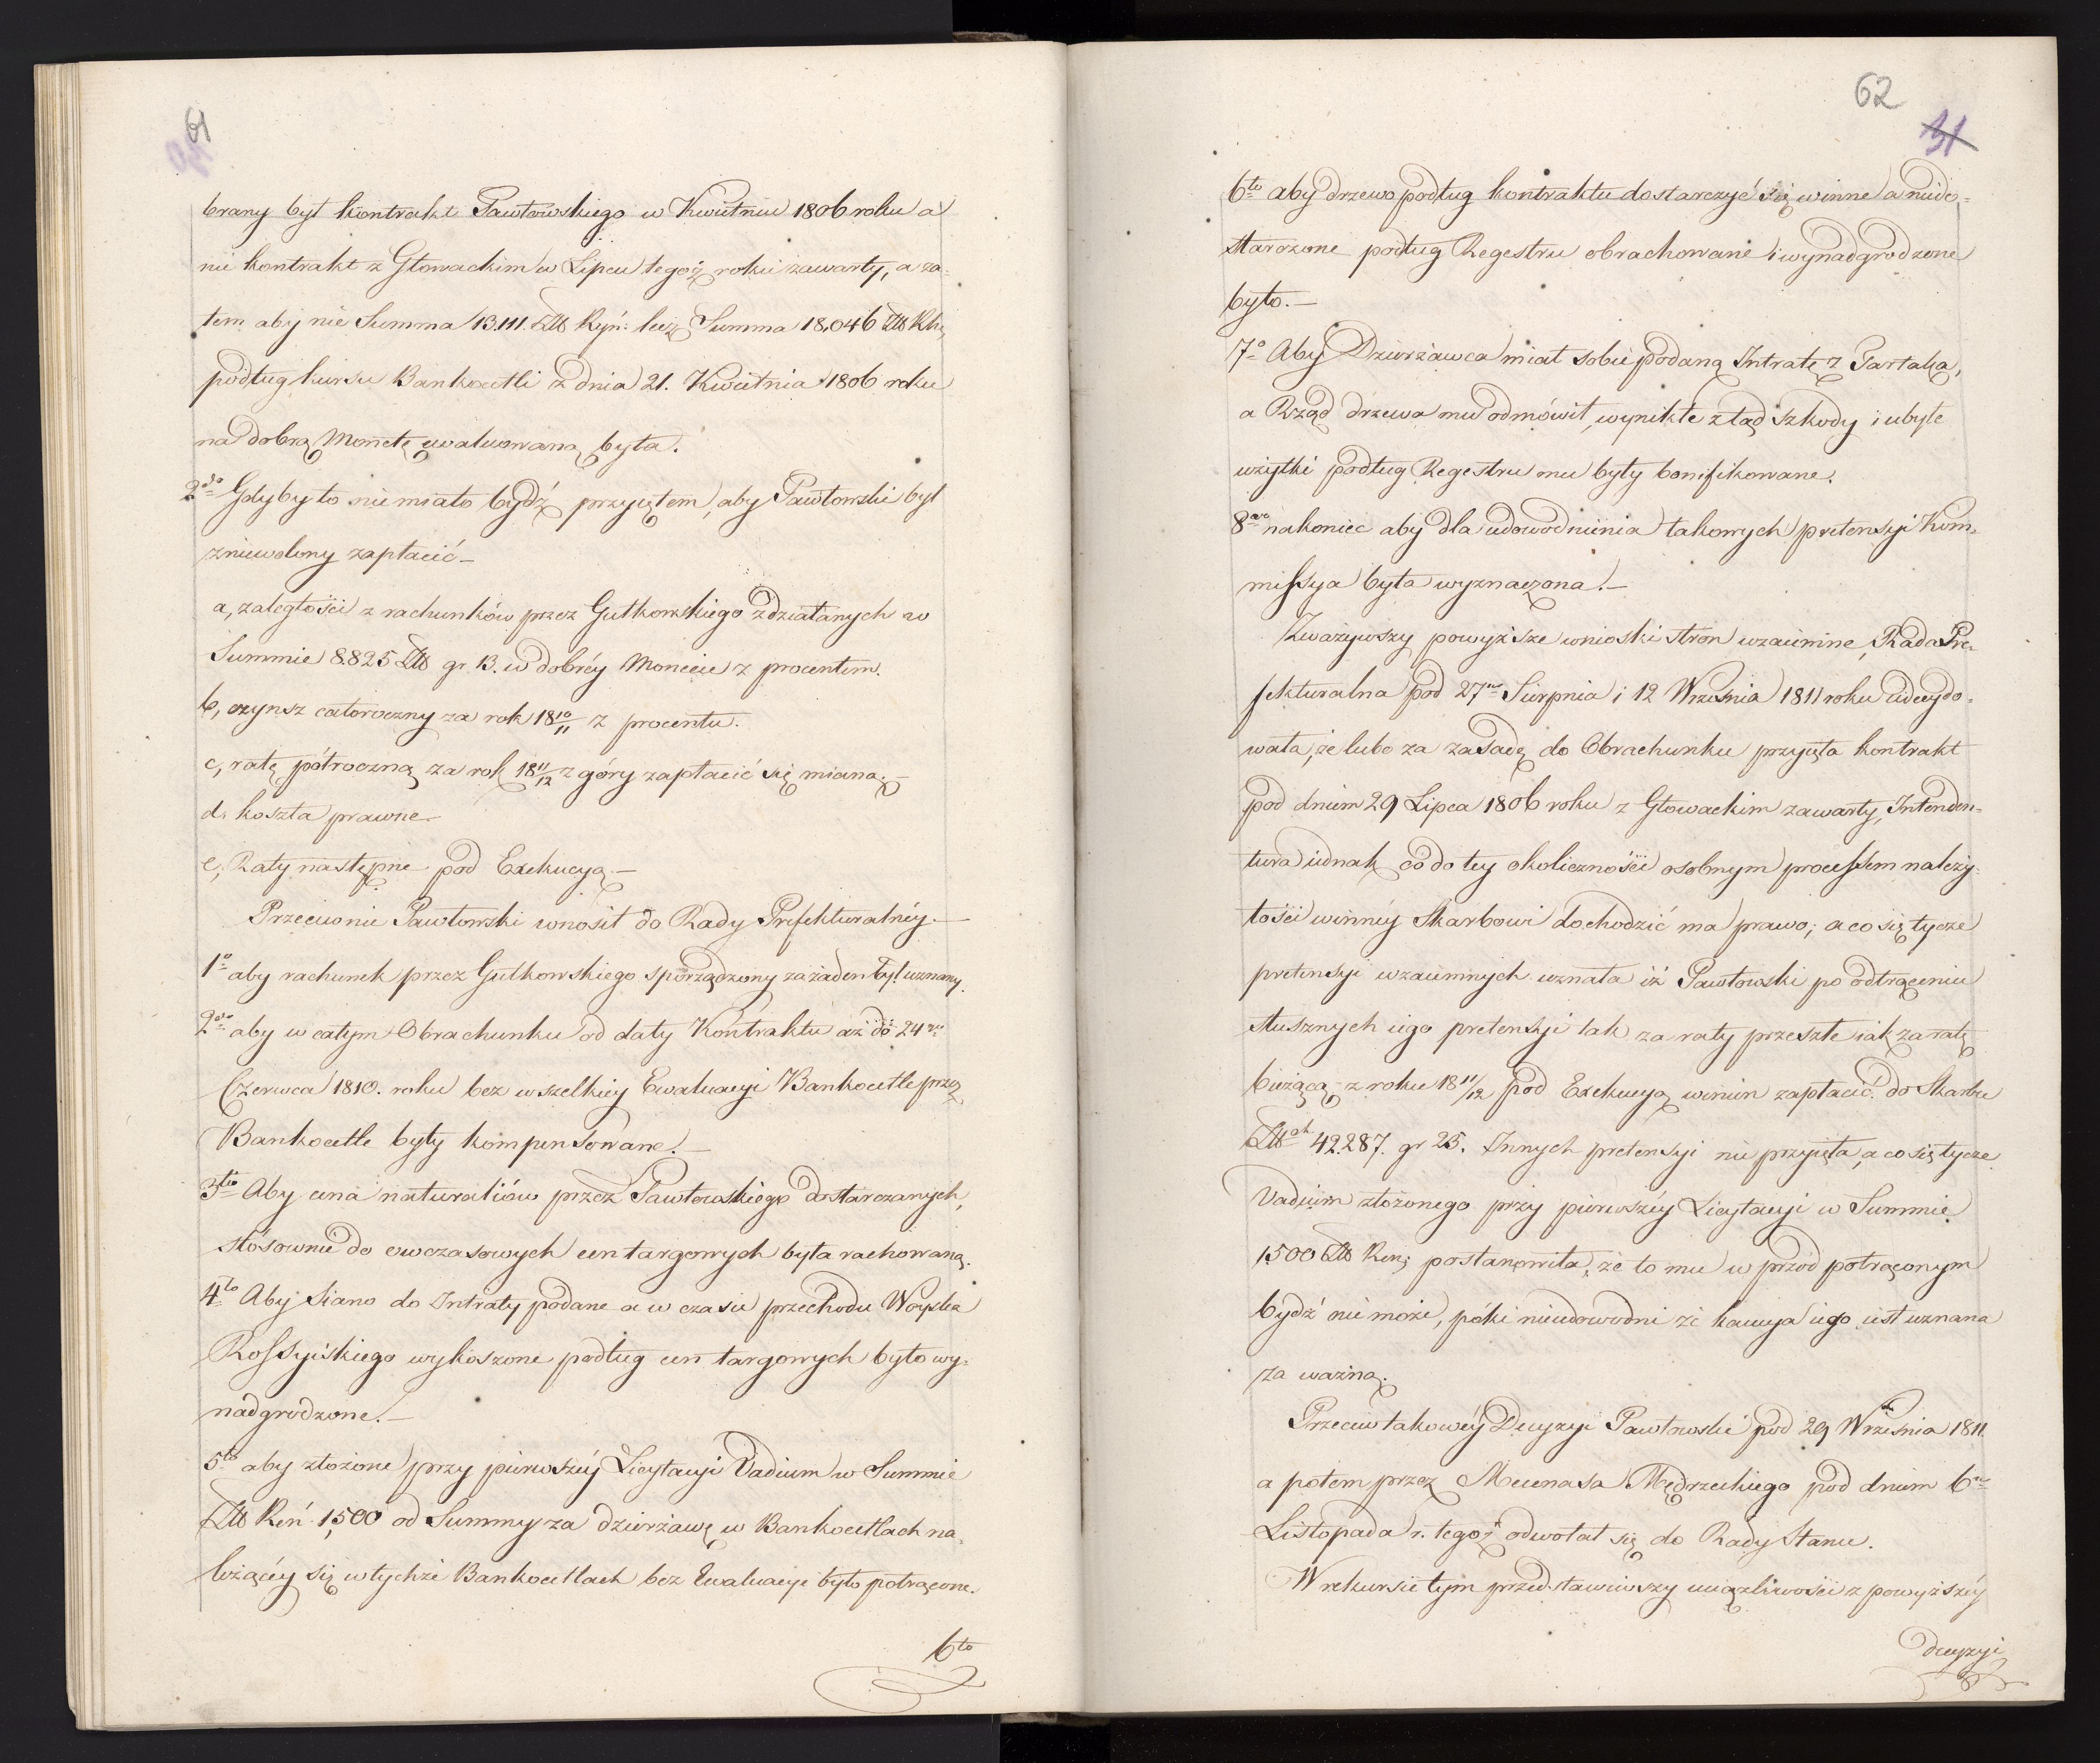 61
brany był kontrakt Pawłowskiego w Kwietniu 1806 roku a
nie kontrakt z Głowackim w Lipcu tegoż roku zawarty, a za-
tem aby nie Summa 13.111. Złł Ryń: lecz Summa 18,046 Złł Rh:
podług kursu Bankocetli z dnia 21. Kwietnia 1806 roku
na dobrą Monetę ewaluowaną była.
2do Gdyby to nie miało bydź przyiętem, aby Pawłowski był
zniewolony zapłacić –
a, zaległości z rachunków przez Gutkowskiego zdziałanych w
Summie 8.825 Złł gr 13. w dobréy Monecie z procentem.
b, czynsz całoroczny za rok 18 10/11 z procentu.
c, ratę półroczną za rok 18 11/12 z góry zapłacić się mianą. –
d. koszta prawne –
e, Raty następne pod Exekucyą. –
Przeciwnie Pawłowski wnosił do Rady Prefekturalnéy. –
1o aby rachunek przez Gutkowskiego sporządzony za żaden był uznany.
2do aby w całym Obrachunku od daty Kontraktu aż do 24go
Czerwca 1810. roku bez wszelkiéy Ewaluacyi Bankocetle przez
Bankocetle były kompensowane. –
3tio Aby cena naturaliów przez Pawłowskiego dostarczanych,
stosownie do owczasowych cen targowych była rachowaną.
4to Aby Siano do Intraty podane a w czasie przechodu Woyska
Rossyiskiego wykoszone podług cen targowych było wy-
nadgrodzone. –
5to aby złożone przy pierwszéy Licytacyi Vadium w Summie
Złł Reń. 1,500 od Summy za dzierżawę w Bankocetlach na-
leżącéy się w tychże Bankocetlach bez Ewaluacyi było potrącone.
6to
62
31
6to aby drzewo podług kontraktu dostarczyć się winne a niedo-
starczone podług Regestru obrachowane i wynadgrodzone
było. –
7o Aby Dzierżawca miał sobie podaną Intratę z Tartaka,
a Rząd drzewa mu odmówił, wynikłe ztąd szkody i ubyłe
użytki podług Regestru mu były bonifikowane.
8vo nakoniec aby dla udowodnienia takowych pretensyi Kom-
missya była wyznaczona. –
Zważywszy powyższe wnioski stron wzaiemne, Rada Pre-
fekturalna pod 27mo Sierpnia i 12 Września 1811 roku udecydo-
wała, że lubo za zasadę do Obrachunku przyięła kontrakt
pod dniem 29 Lipca 1806 roku z Głowackim zawarty, Intenden-
tura iednak co do tey okoliczności osobnym processem należy-
tości winnéy Skarbowi dochodzić ma prawo; a co się tycze
pretensyi wzaiemnych uznała iż Pawłowski po odtrąceniu
słusznych iego pretensyi tak za raty przeszłe iak za ratę
bieżącą z roku 18 11/12 pod Exekucyą winien zapłacić do Skarbu
Złłch 42.287. gr 25. Innych pretensyi nie przyięła, a co się tycze
Vadium złożonego przy pierwszéy Licytacyi w Summie
1500 Złł Ren: postanowiła, że to mu w przód potrąconym
bydź nie może, póki nieudowodni że kaucya iego iest uznana
za ważną.
Przeciw takowéy Decyzyi Pawłowski pod 29 Września 1811.
a potem przez Mecenasa Mędrzeckiego pod dniem 6mo
Listopada r. tegoż odwołał się do Rady Stanu.
W rekursie tym przedstawiwszy uciążliwości z powyższéy
decyzyi